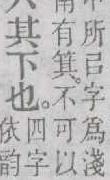 中所㠯字爲淺
南有箕。不可以
其下也。四字
依韵